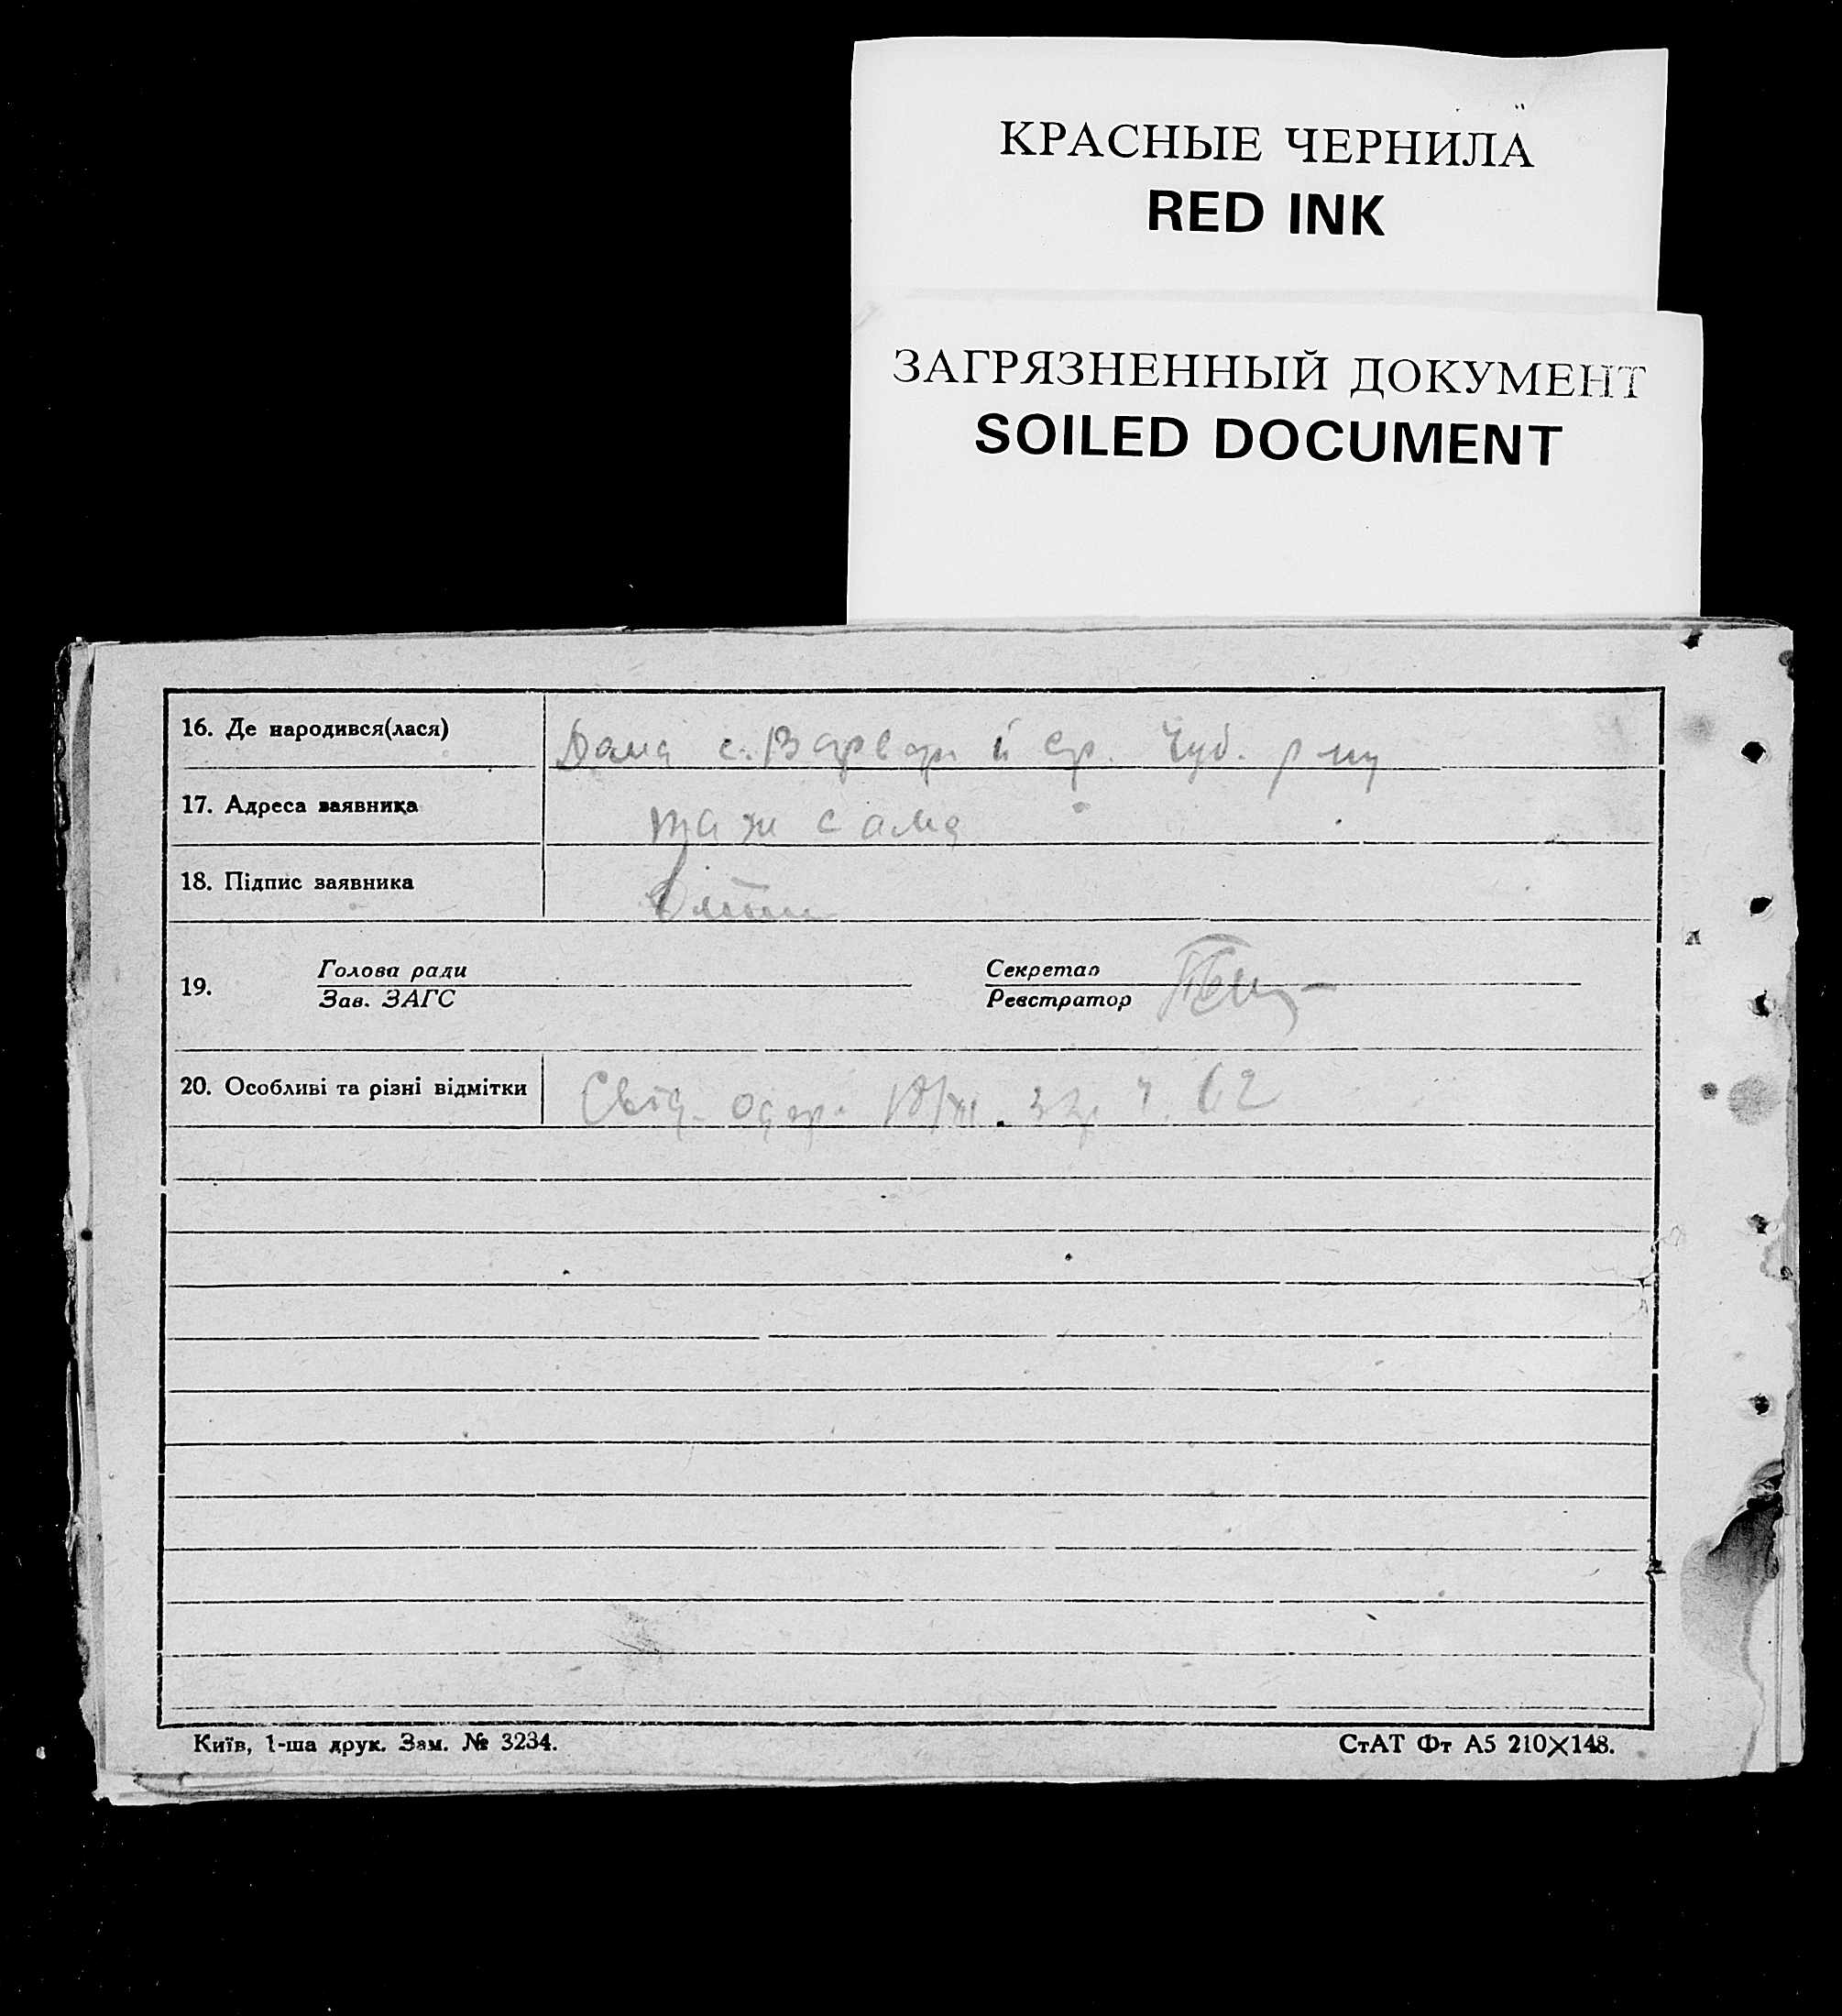 КРАСНЫЕ ЧЕРНИЛА
RED INK
ЗАГРЯЗНЕННЫЙ ДОКУМЕНТ
SOILED DOCUMENT
16. Де народився(лася)
Дома с. Варвар
17. Адреса заявника
таж сама
18. Підпис заявника
19.
Голова ради
Зав. ЗАГС
Секретар
Реєстратор
20. Особливі та різні відмітки
Свід. одер. 62
Київ, 1-ша друк. Зам. № 3234.
СтАТ Фт А5 210×148.